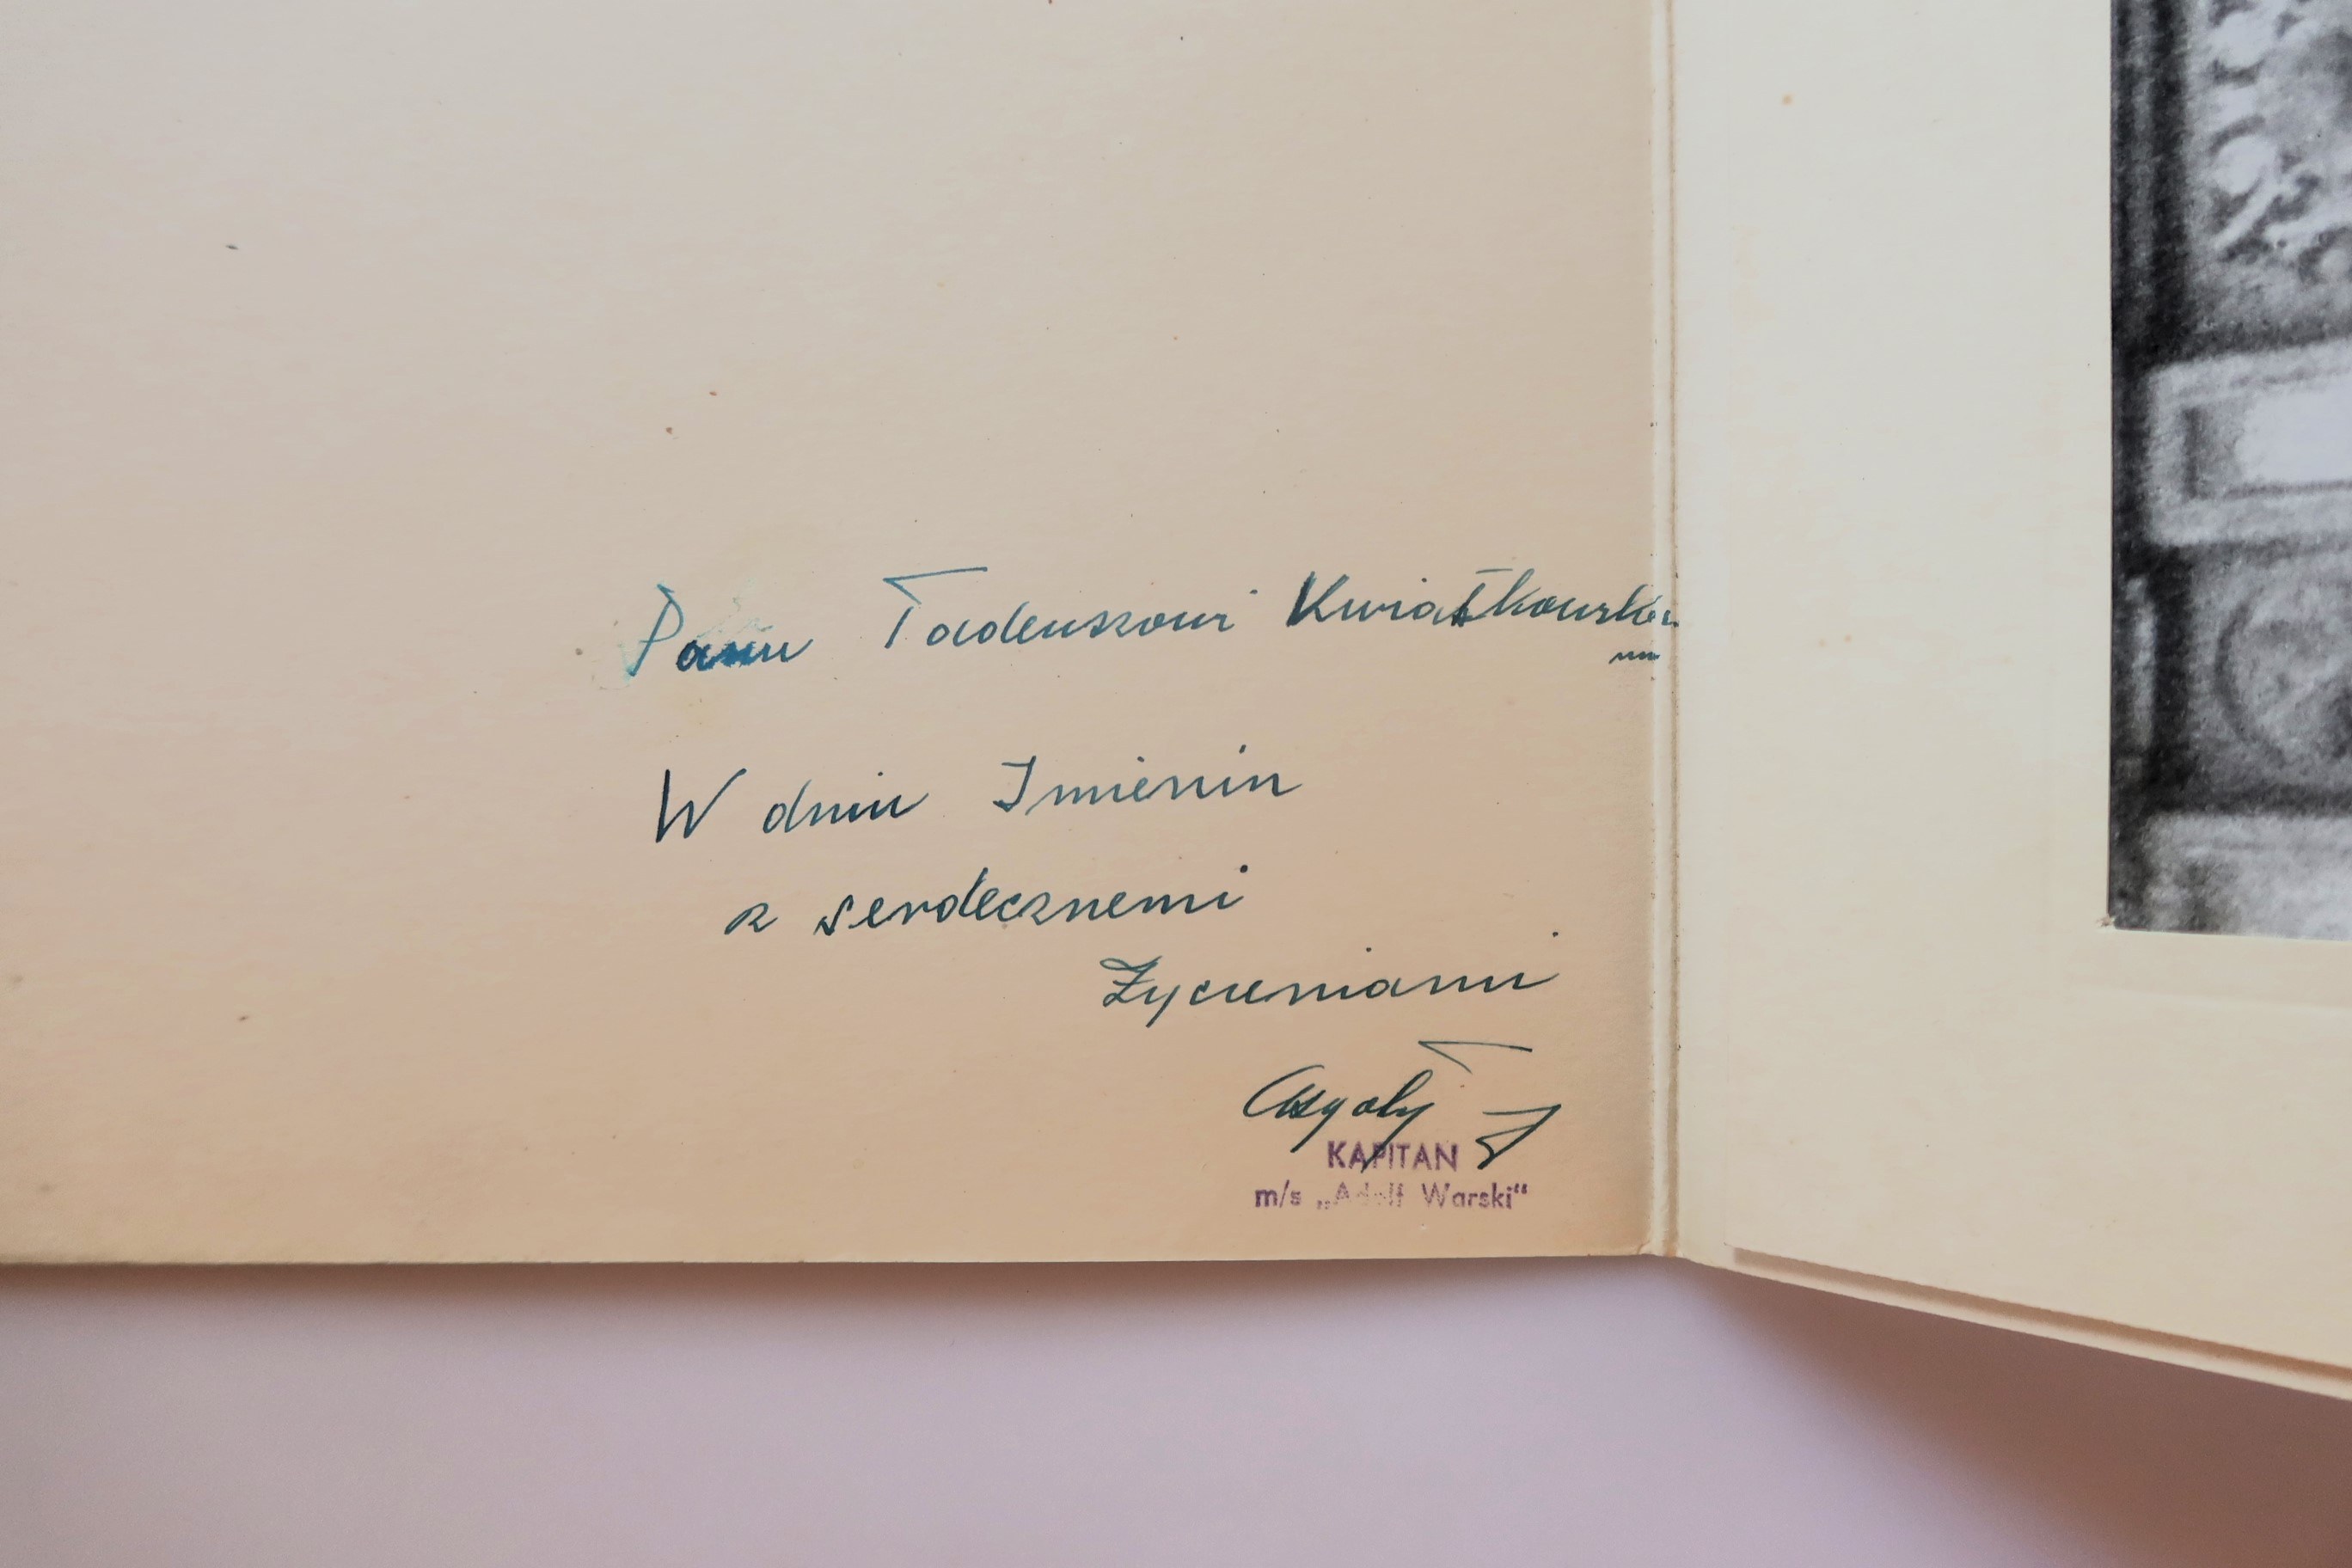 Panu Tadeuszowi Kwiatkowskie
mu
W dniu Imienin
z serdecznemi
Życzeniami
KAPITAN
m/s „Adolf Warski“